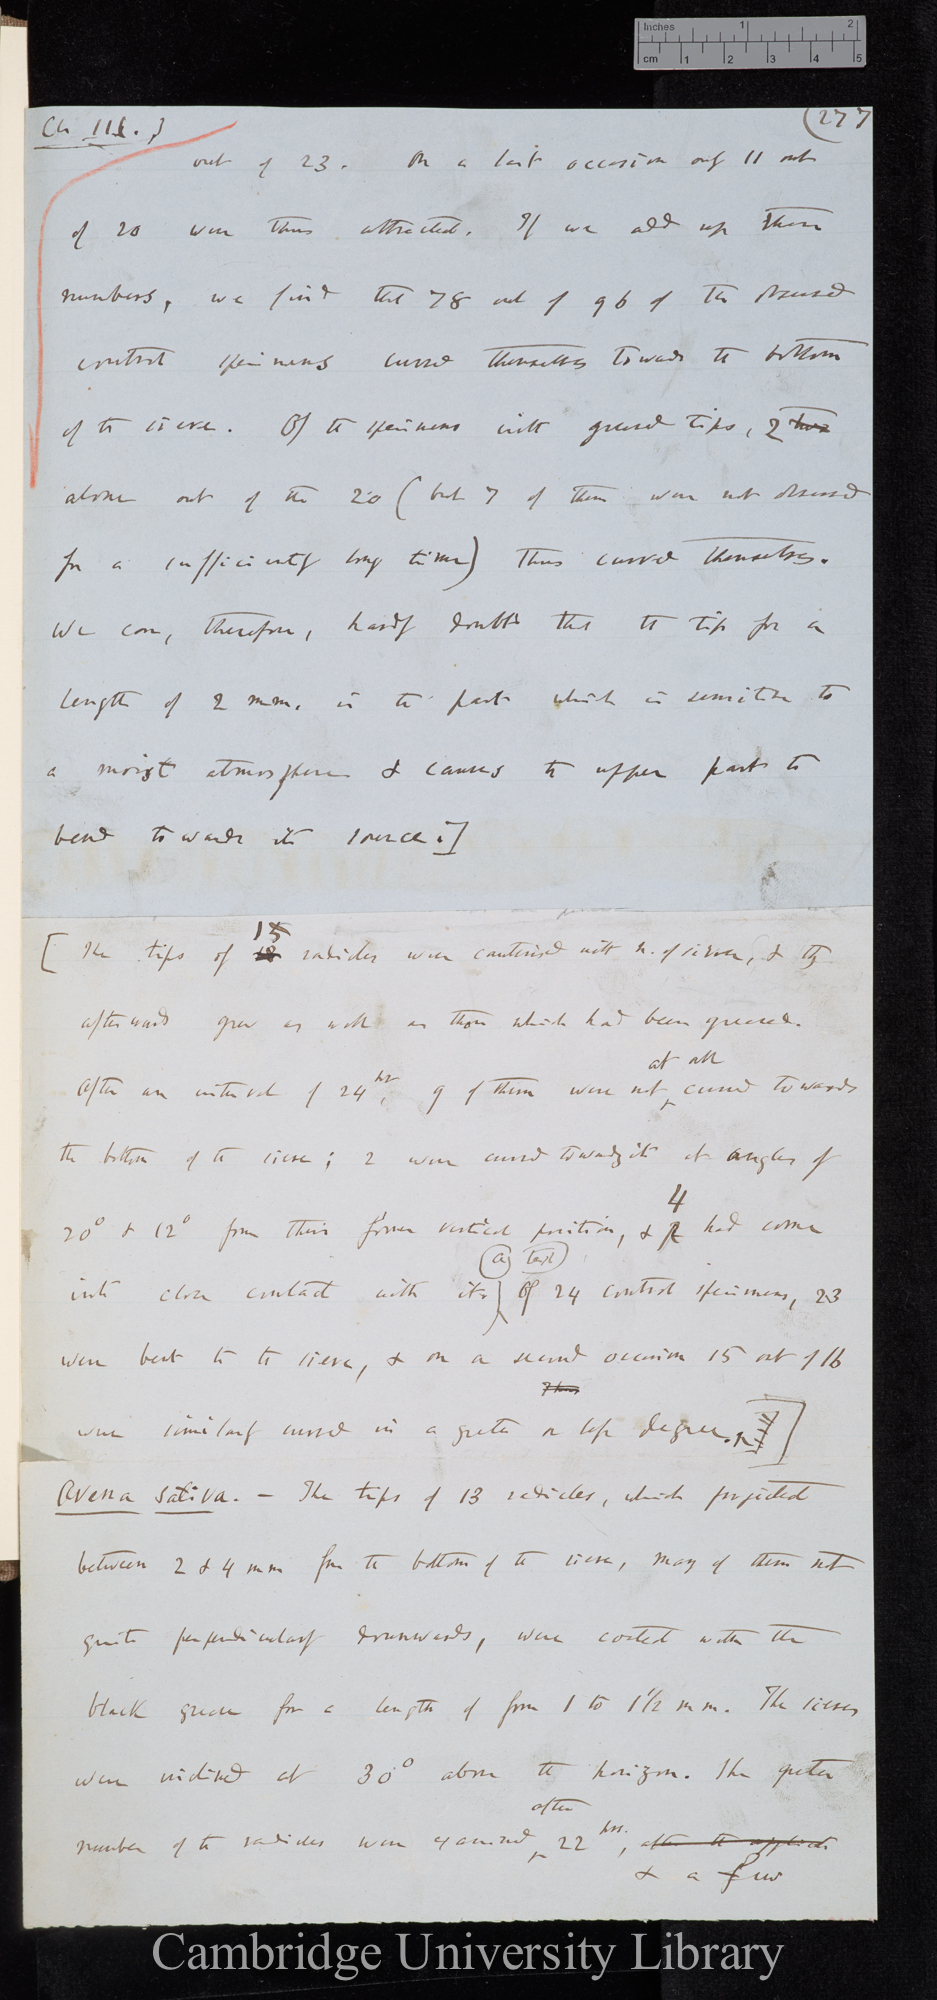 Inches 1 2
cm 1 2 3 4 5
Ch III.}
(277
out of 23. On a last occasion only 11 out
of 20 were thus attracted. If we add up these
numbers, we find that 78 out of 96 of the observed
control specimens curved themselves towards the bottom
of the sieve. Of the specimens with greased tips, 2 two
alone out of the 20 (but 7 of them were not observed
for a sufficiently long time) thus curved themselves.
We can, therefore, hardly doubt that the tip for a
length of 2 mm. is the part which is sensitive to
a moist atmosphere & causes the upper part to
bend towards its source.]
15
[ The tips of radicles were cauterised with n. of silver, & they
afterwards grew as well as those which had been greased.
at all
After an interval of 24 hrs, 9 of them were not curved towards
the bottom of the sieve; 2 were curved towards it at angles of
4
20° & 12° from their former vertical position, & had come
(a) text
into close contact with it) Of 24 control specimens, 23
were bent to the sieve, & on a second occasion 15 out of 16
were similarly curved in a greater or less degree.]
Avena sativa. — The tips of 13 radicles, which projected
between 2 & 4 mm from the bottom of the sieve, many of them not
quite perpendicularly downwards, were coated with the
black grease for a length of from 1 to 1 1/2 mm. The sieves
were inclined at 30° above the horizon. The greater
after
number of the radicles were examined 22 hrs., after the application
& a few
Cambridge University Library